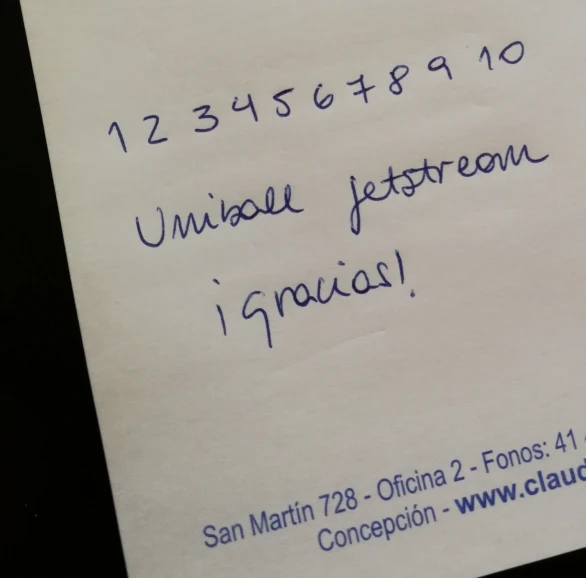 1 2 3 4 5 6 7 8 9 10
Uniball jetstream
¡gracias!
San Martín 728 - Oficina 2 - Fonos: 41
Concepción - www.claud